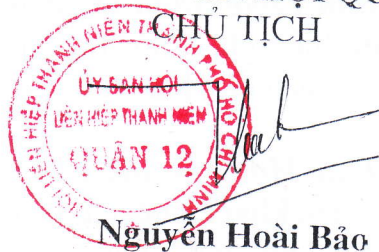 CHỦ TỊCH
HỘI LIÊN HIỆP THANH NIÊN THÀNH PHỐ HỒ CHÍ MINH
ỦY BAN HỘI
LIÊN HIỆP THANH NIÊN
QUẬN 12
Nguyễn Hoài Bảo